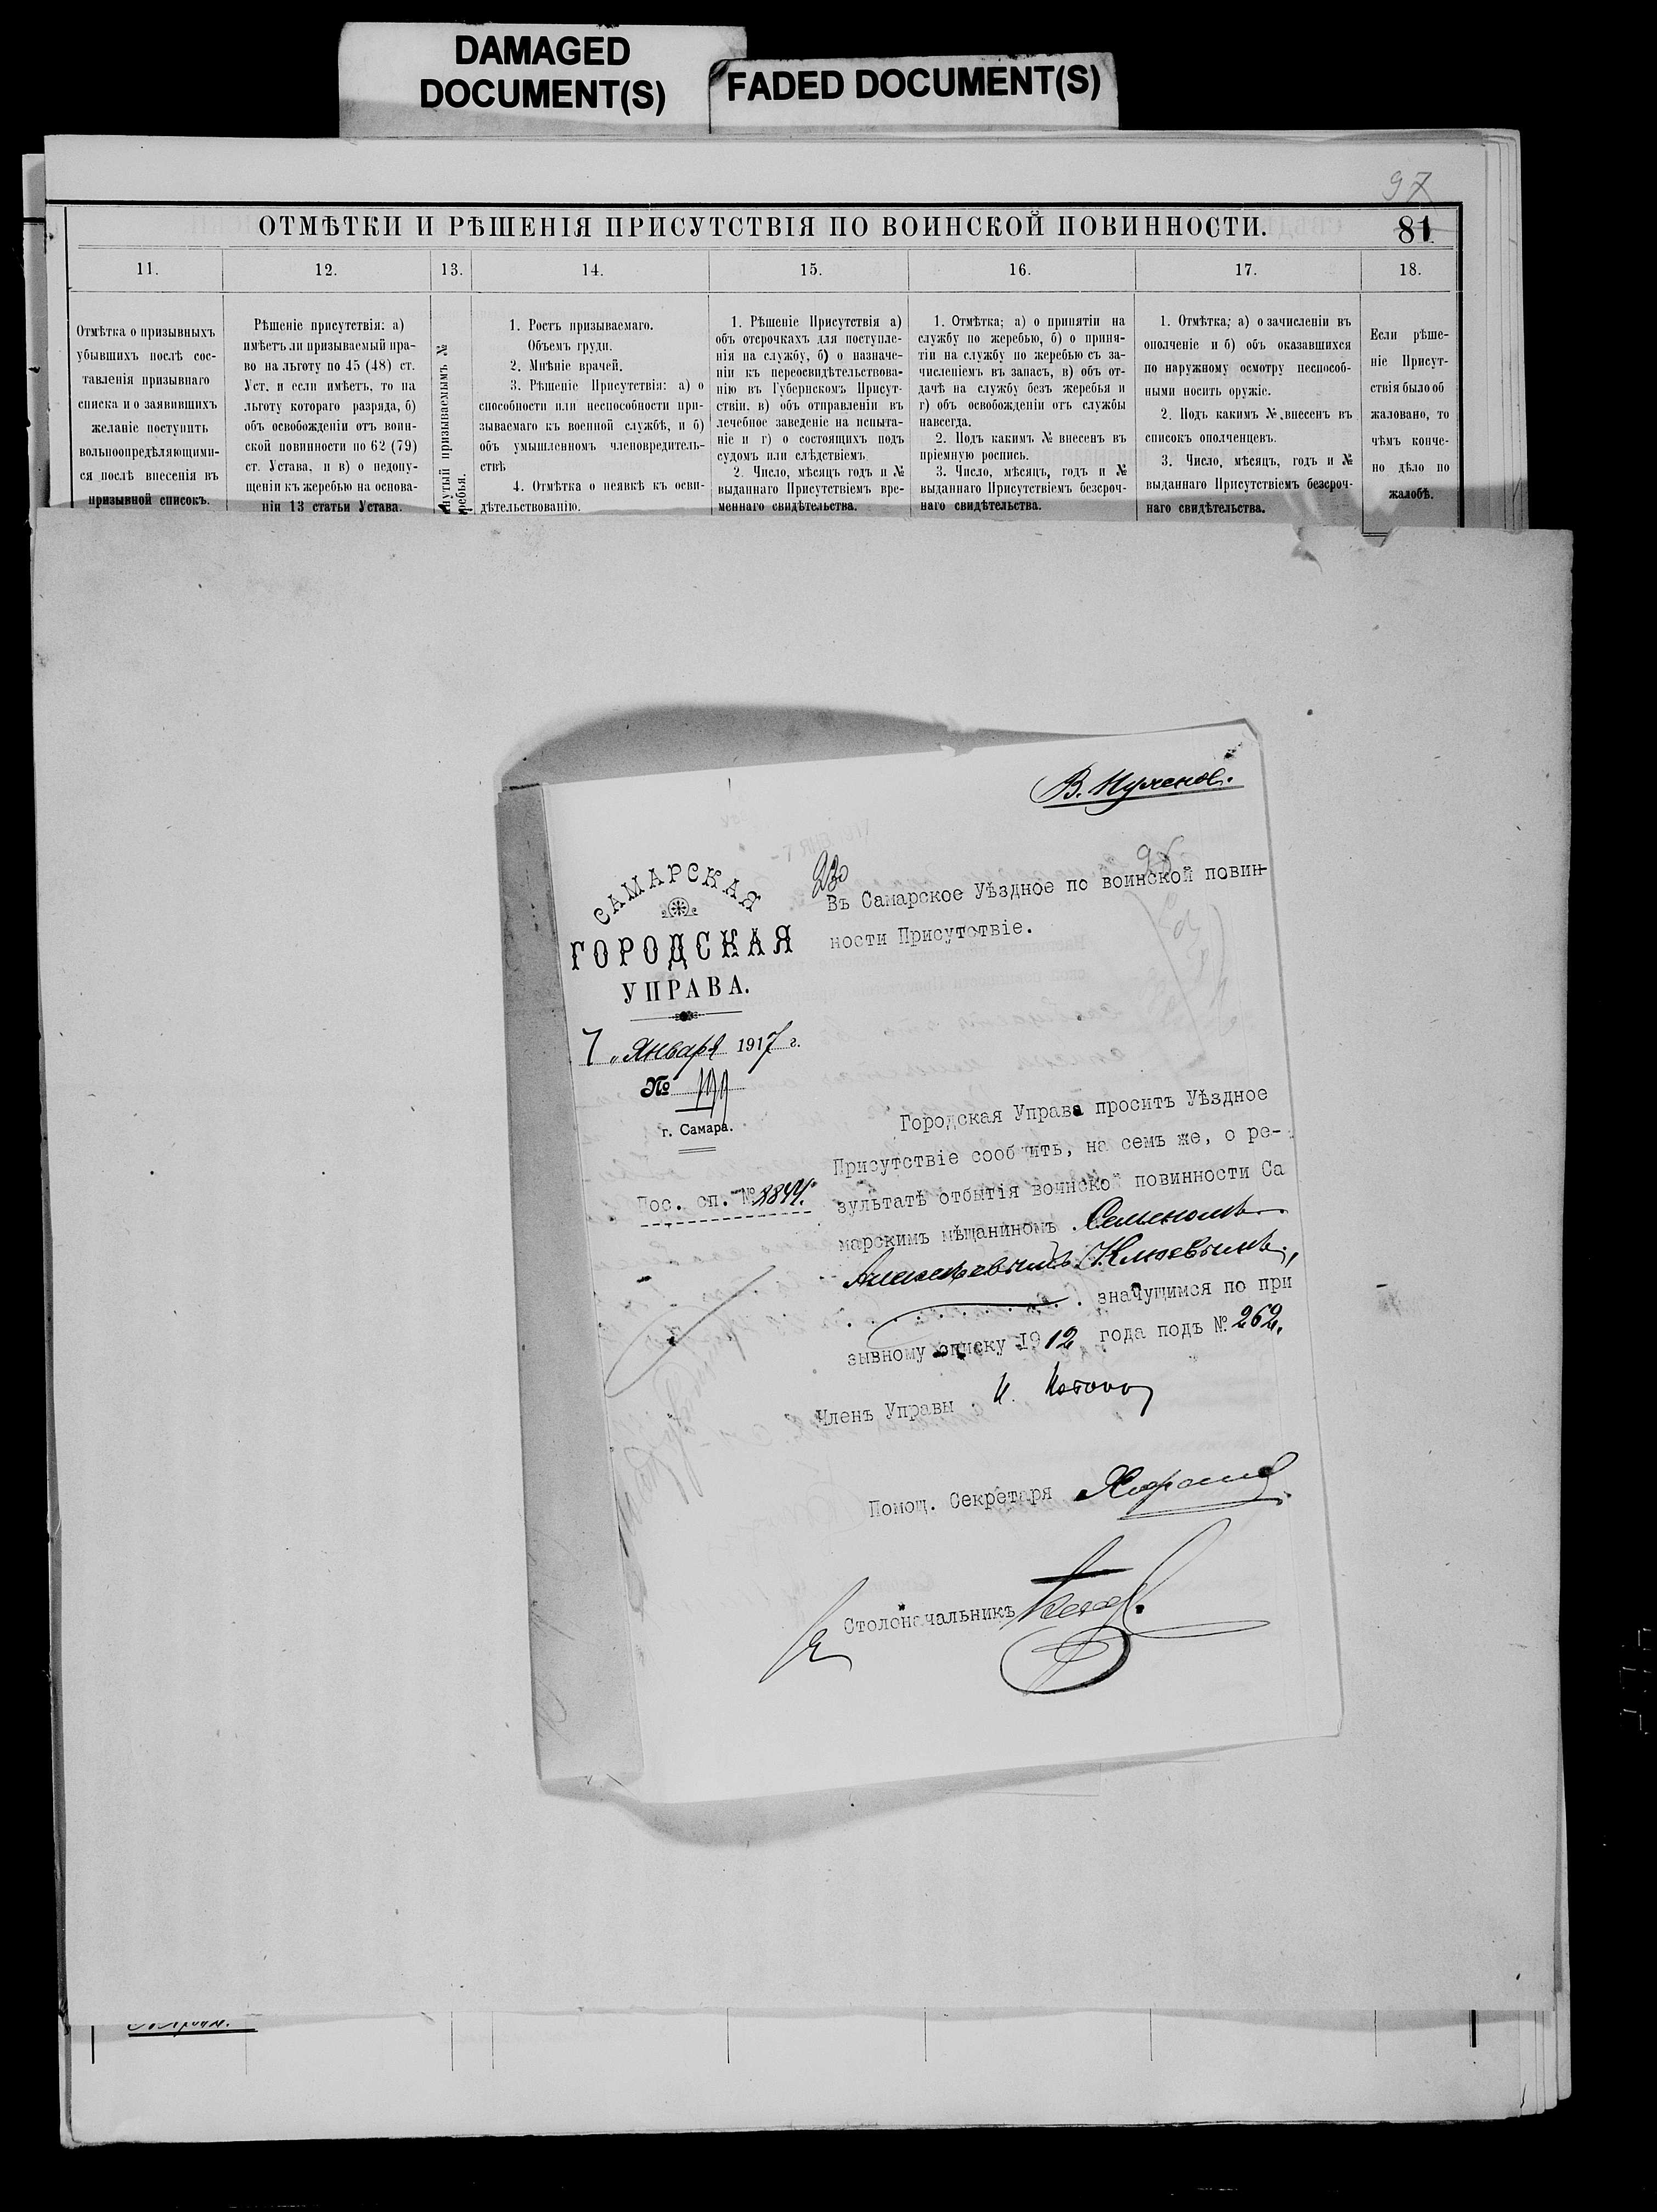 DAMAGED
DOCUMENT(S)
FADED DOCUMENT(S)
97
ОТМѢТКИ И РѢШЕНІЯ ПРИСУТСТВІЯ ПО ВОИНСКОЙ ПОВИННОСТИ.
81
11.
12.
13.
14.
15.
16.
17.
18.
Отмѣтка о призывныхъ
убывшихъ послѣ сос-
тавленія призывнаго
списка и о заявившихъ
желаніе поступить
вольноопредѣляющими-
ся послѣ внесенія въ
призывной списокъ.
Рѣшеніе присутствія: а)
имѣетъ ли призываемый пра-
во на льготу по 45 (48) ст.
Уст. и если имѣетъ, то на
льготу котораго разряда, б)
объ освобожденіи отъ воин-
ской повинности по 62 (79)
ст. Устава, и в) о недопу-
щеніи къ жеребью на основа-
ніи 13 статьи Устава.
нутый призываемымъ №
ребья.
1. Ростъ призываемаго.
Объемъ груди.
2. Мнѣніе врачей.
3. Рѣшеніе Присутствія: а) о
способности или неспособности при-
зываемаго къ военной службѣ, и б)
объ умышленномъ членовредитель-
ствѣ
4. Отмѣтка о неявкѣ къ осви-
дѣтельствованію.
1. Рѣшеніе Присутствія а)
объ отсрочкахъ для поступле-
нія на службу, б) о назначе-
ніи къ переосвидѣтельствова-
нію въ Губернскомъ Присут-
ствіи. в) объ отправленіи въ
лечебное заведеніе на испыта-
ніе и г) о состоящихъ подъ
судомъ или слѣдствіемъ
2. Число, мѣсяцъ годъ и №
выданнаго Присутствіемъ вре-
меннаго свидѣтельства.
1. Отмѣтка; а) о принятіи на
службу по жеребью, б) о приня-
тіи на службу по жеребью съ за-
численіемъ въ запасъ, в) объ от-
дачѣ на службу безъ жеребья и
г) объ освобожденіи отъ службы
навсегда.
2. Подъ какимъ № внесенъ въ
пріемную роспись.
3. Число, мѣсяцъ, годъ и №
выданнаго Присутствіемъ безсроч-
наго свидѣтельства.
1. Отмѣтка; а) о зачисленіи въ
ополченіе и б) объ оказавшихся
по наружному осмотру неспособ-
ными носить оружіе.
2. Подъ какимъ № внесенъ въ
списокъ ополченцевъ.
3. Число, мѣсяцъ, годъ и №
выданнаго Присутствіемъ безсроч-
наго свидѣтельства.
Если рѣше-
ніе Присут-
ствія было об
жаловано, то
чѣмъ конче-
но дѣло по
жалобѣ.
САМАРСКАЯ
ГОРОДСКАЯ
УПРАВА.
7 „ Января 1917 г.
№
г. Самара.
Пос. сп. № 8844.
230
Въ Самарское Уѣздное по воинской повин-
ности Присутствіе.
Городская Управа проситъ Уѣздное
Присутствіе сообщить, на семъ же, о ре-
зультатѣ отбытія воинской повинности Са
марскимъ мѣщаниномъ Семеномъ
Алексѣевымъ Клюевымъ,
значущимся по при
зывному списку 1912 года подъ № 262.
Членъ Управы
Помощ. Секретаря
Столоначальникъ